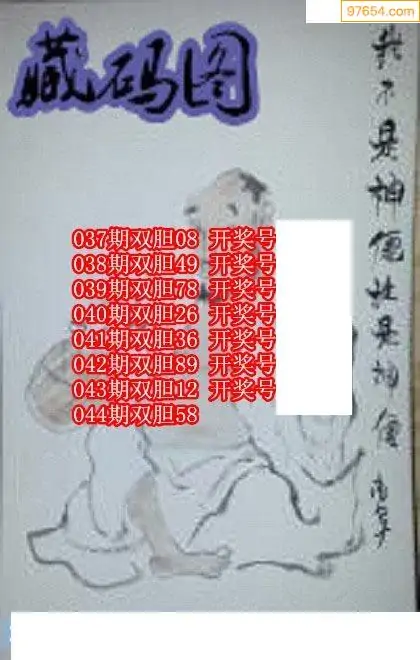 97654.com
藏码图
我不是神僊谁是神僊
037期双胆08 开奖号
038期双胆49 开奖号
039期双胆78 开奖号
040期双胆26 开奖号
041期双胆36 开奖号
042期双胆89 开奖号
043期双胆12 开奖号
044期双胆58